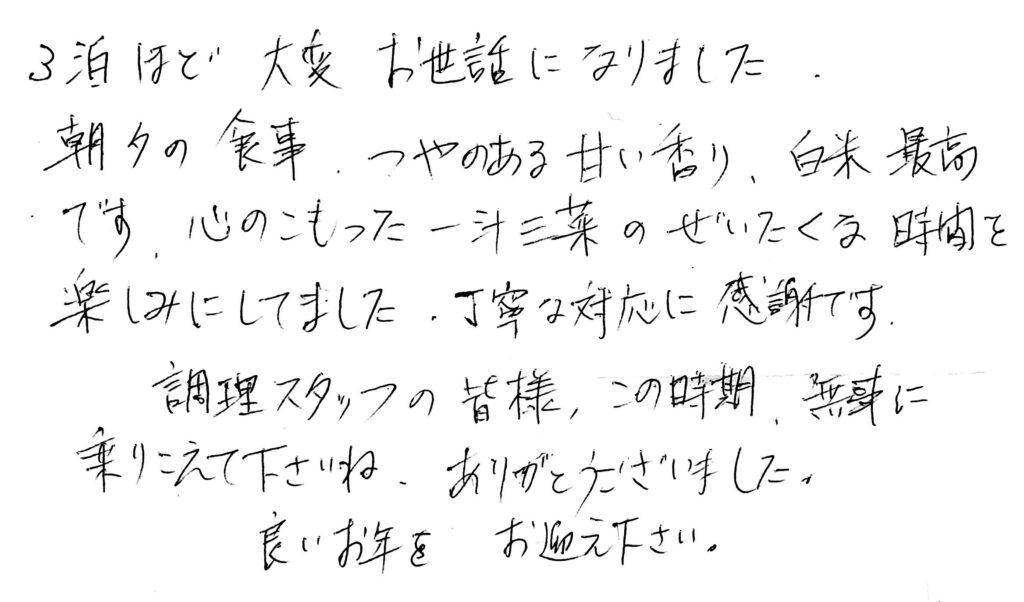 3泊ほど 大変 お世話になりました.
朝夕の食事、つやのある甘い香り、白米最高
です、心のこもった一汁三菜のぜいたくな時間を
楽しみにしてました.丁寧な対応に感謝です.
調理スタッフの皆様、この時期、無事に
乗りこえて下さいね.ありがとうございました。
良いお年を お迎え下さい。